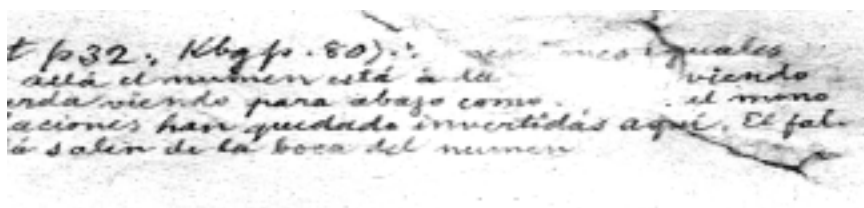 t p32; Kbg p. 80). iguales
allá el numen está á la viendo
erda viendo para abajo como el mono
aciones han quedado invertidas aquí. El fal-
á salen de la boca del numen